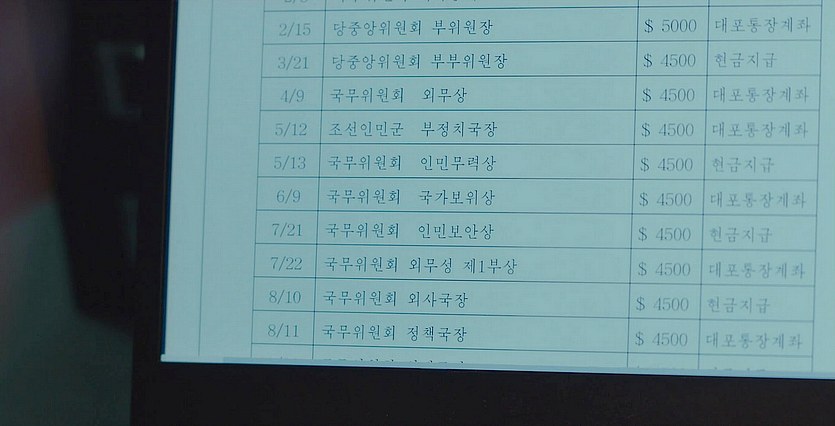 2/15 당중앙위원회 부위원장 $ 5000 대포통장계좌
3/21 당중앙위원회 부부위원장 $ 4500 현금지급
4/9 국무위원회 외무상 $ 4500 대포통장계좌
5/12 조선인민군 부정치국장 $ 4500 대포통장계좌
5/13 국무위원회 인민무력상 $ 4500 현금지급
6/9 국무위원회 국가보위상 $ 4500 대포통장계좌
7/21 국무위원회 인민보안상 $ 4500 현금지급
7/22 국무위원회 외무성 제1부상 $ 4500 대포통장계좌
8/10 국무위원회 외사국장 $ 4500 현금지급
8/11 국무위원회 정책국장 $ 4500 대포통장계좌